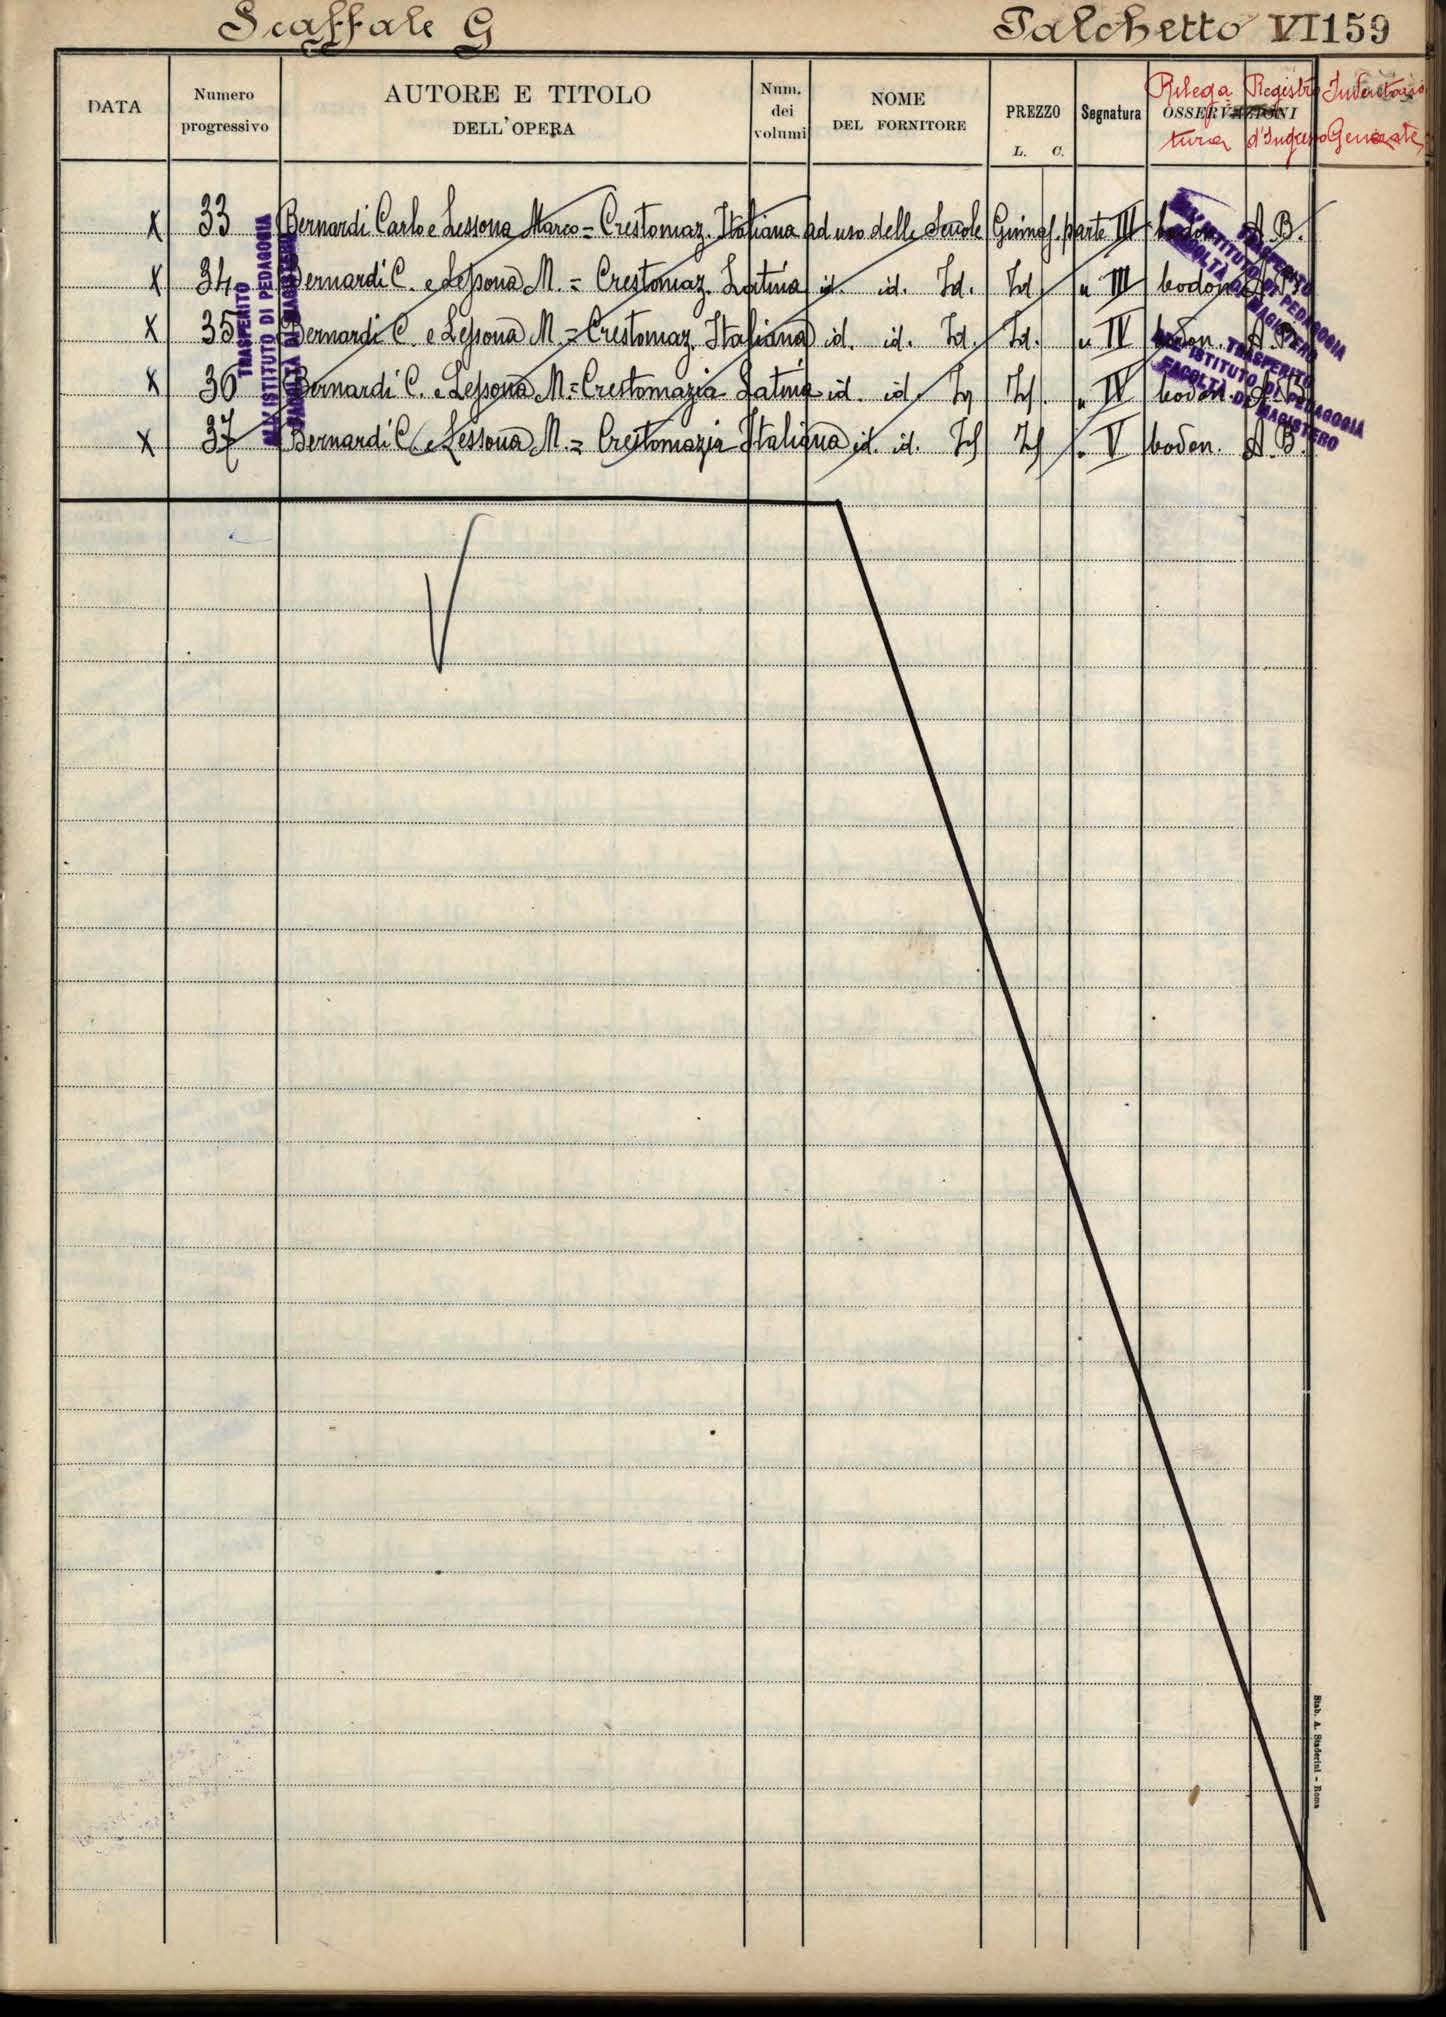 Scaffale G Palchetto VI 159
DATA Numero progressivo AUTORE E TITOLO DELL'OPERA Num. dei volumi NOME DEL FORNITORE PREZZO L. C. Segnatura OSSERVAZIONI
Rilega tura Registro d'Ingresso Inventario Generale
X 33 Bernardi Carlo e Lessona Marco = Crestomaz. Italiana ad uso delle Scuole Ginnas. parte III bodon. A.B.
X 34 Bernardi C. e Lessona M. = Crestomaz. Latina id. id. Id. Id. " III bodon.
X 35 Bernardi C. e Lessona M. = Crestomaz. Italiana id. id. Id. Id. " IV bodon. A.B.
X 36 Bernardi C. e Lessona M. = Crestomazia Latina id. id. Id Id. " IV bodon.
X 37 Bernardi C. e Lessona M. = Crestomazia Italiana id. id. Id Id " V bodon. A.B.
TRASFERITO
ALL'ISTITUTO DI PEDAGOGIA
FACOLTÀ DI MAGISTERO
TRASFERITO
ALL'ISTITUTO DI PEDAGOGIA
FACOLTÀ DI MAGISTERO
TRASFERITO
ALL'ISTITUTO DI PEDAGOGIA
FACOLTÀ DI MAGISTERO
Stab. A. Staderini - Roma